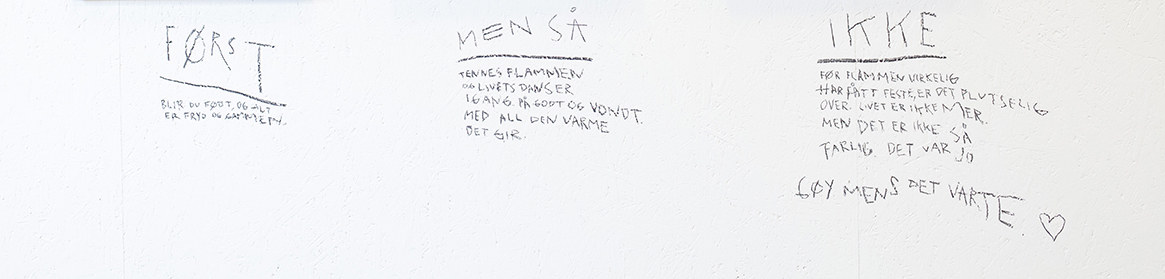 FØRST
BLIR DU FØDT, OG ALT
ER FRYD OG GAMMEN.
MEN SÅ
TENNES FLAMMEN
OG LIVETS DANS ER
IGANG. PÅ GODT OG VONDT.
MED ALL DEN VARME
DET GIR.
IKKE
FØR FLAMMEN VIRKELIG
HAR FÅTT FESTE, ER DET PLUTSELIG
OVER. LIVET ER IKKE MER.
MEN DET ER IKKE SÅ
FARLIG. DET VAR JO
GØY MENS DET VARTE.